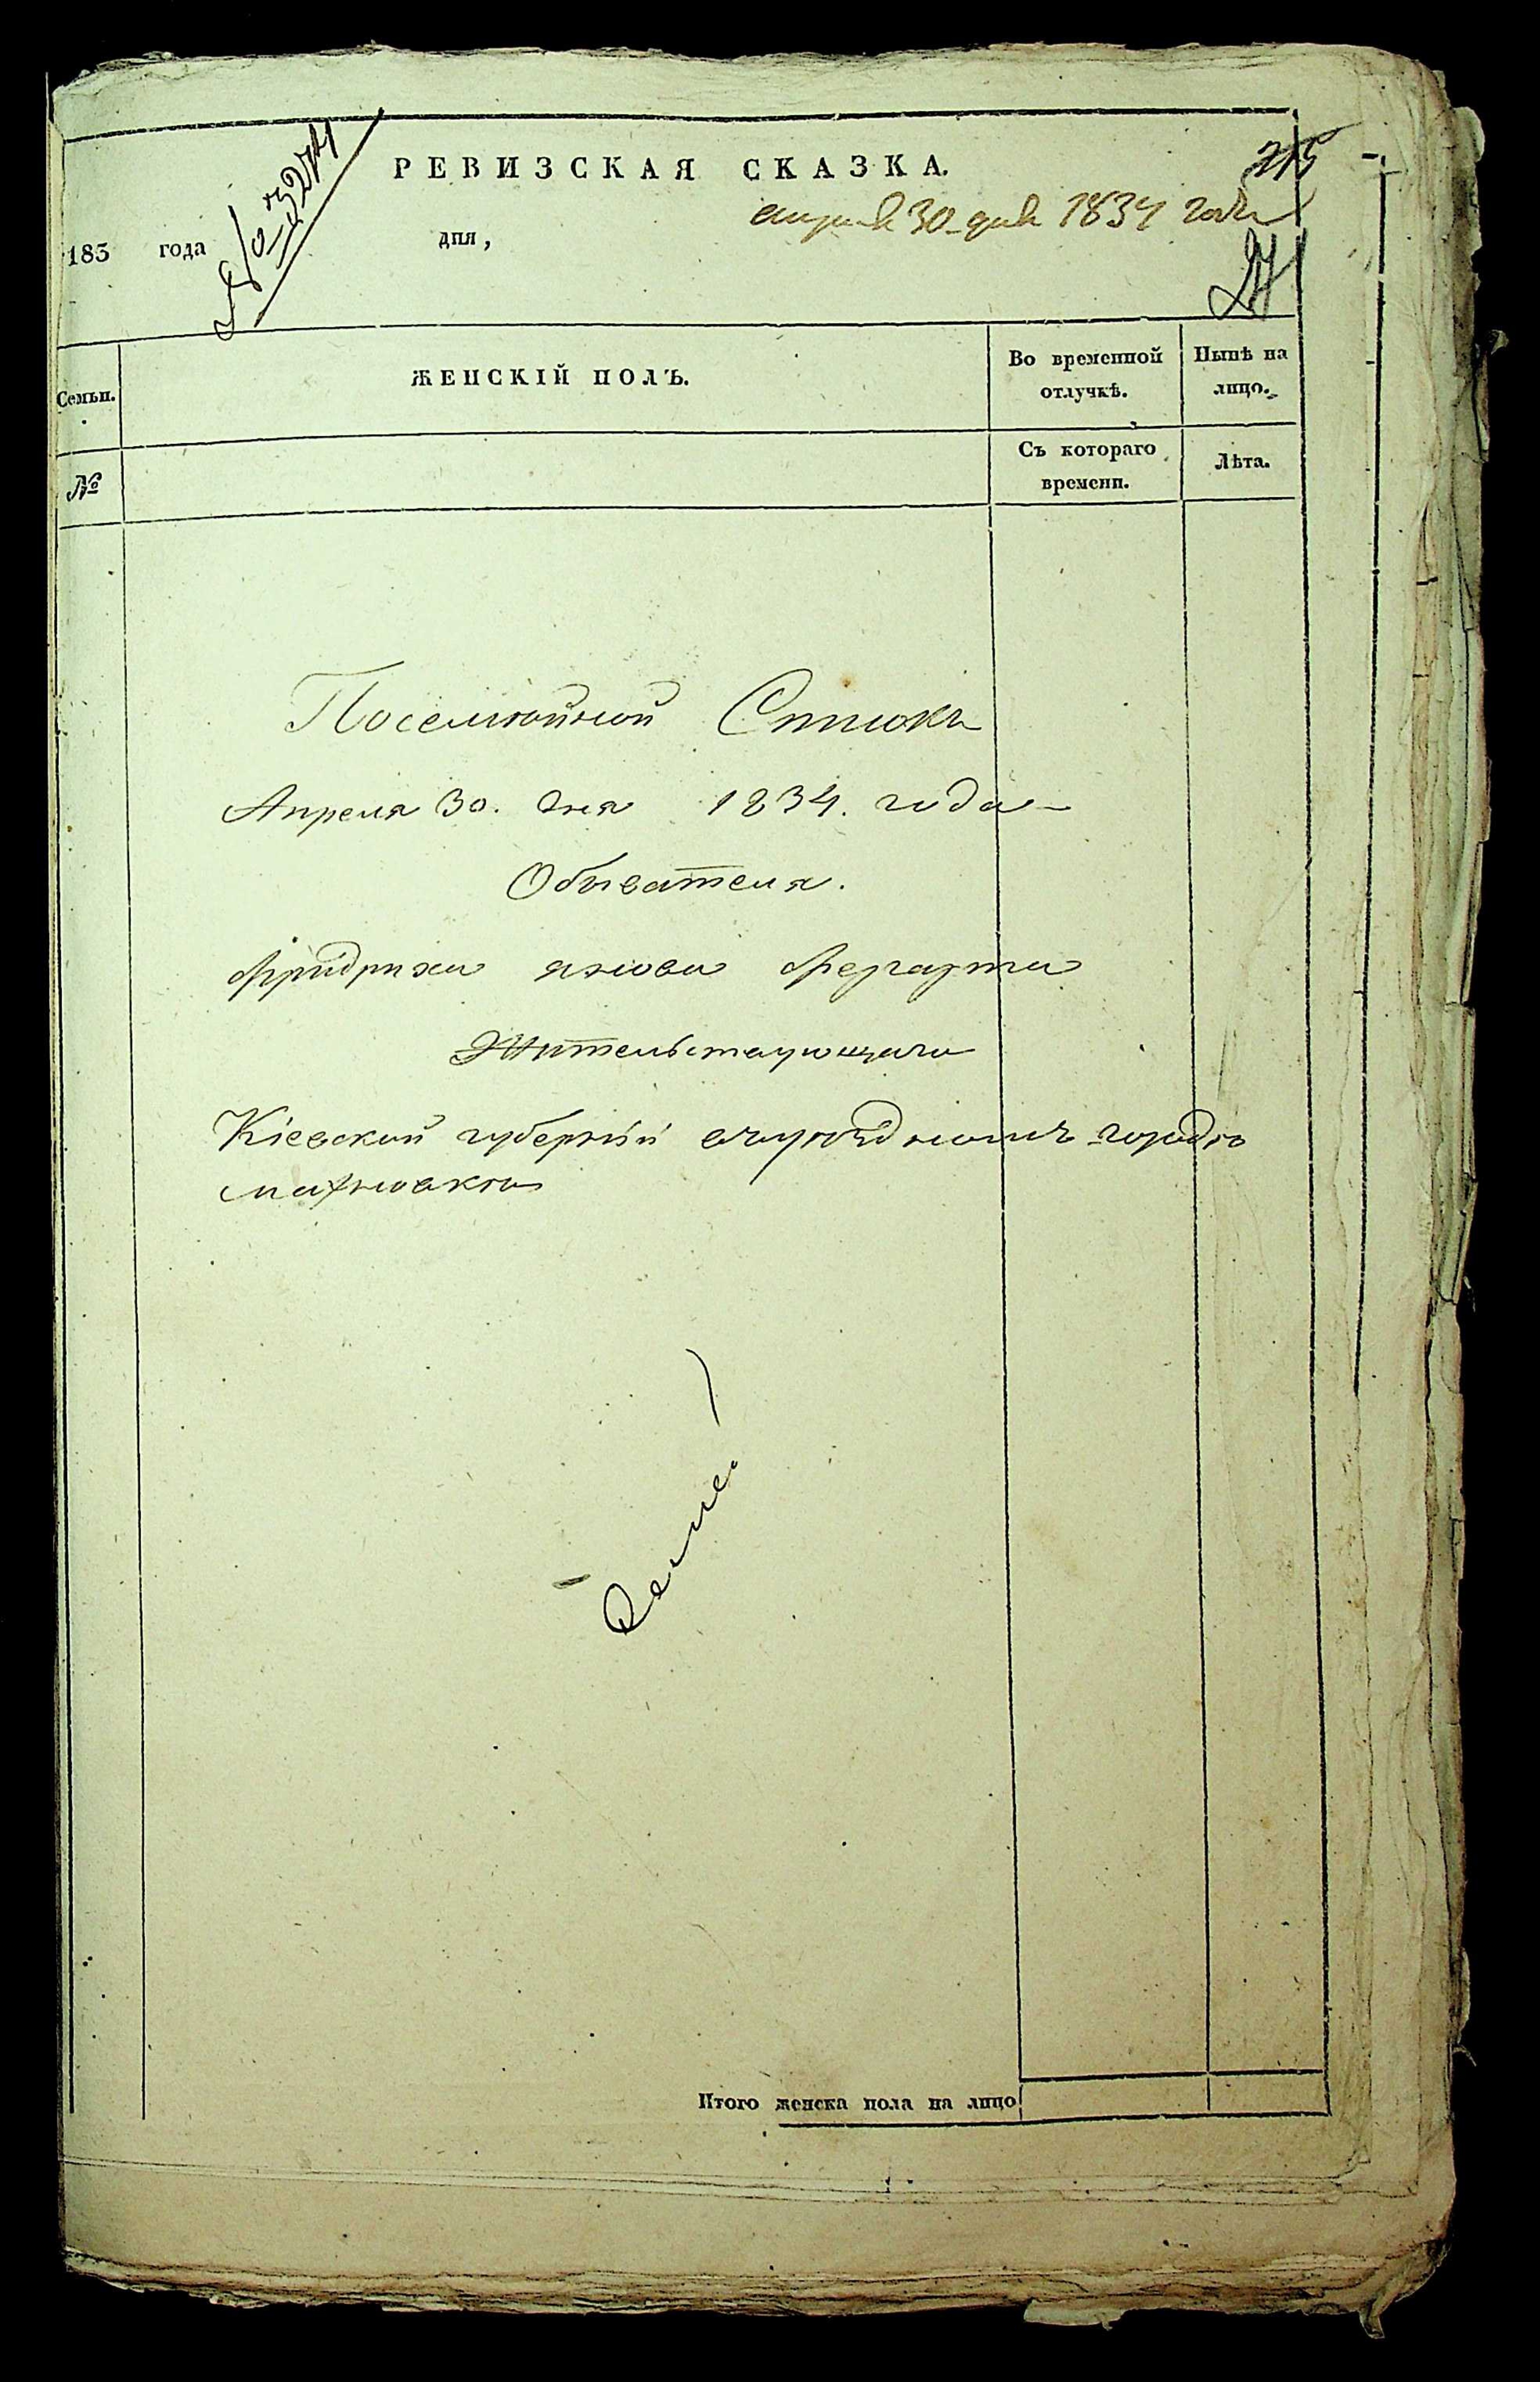 215
РЕВИЗСКАЯ СКАЗКА.
апреля 30 дня 1834 года
183 года дня,
Семьи.
ЖЕНСКІЙ ПОЛЪ.
Во временной отлучкѣ.
Нынѣ на лицо.
№
Съ котораго времени.
Лѣта.
Посемейной Списокъ
Апреля 30. дня 1834. года
Обывателя.
Фридриха
Жительствующаго
Кіевской губерніи городѣ
махновки
Итого женска пола на лицо